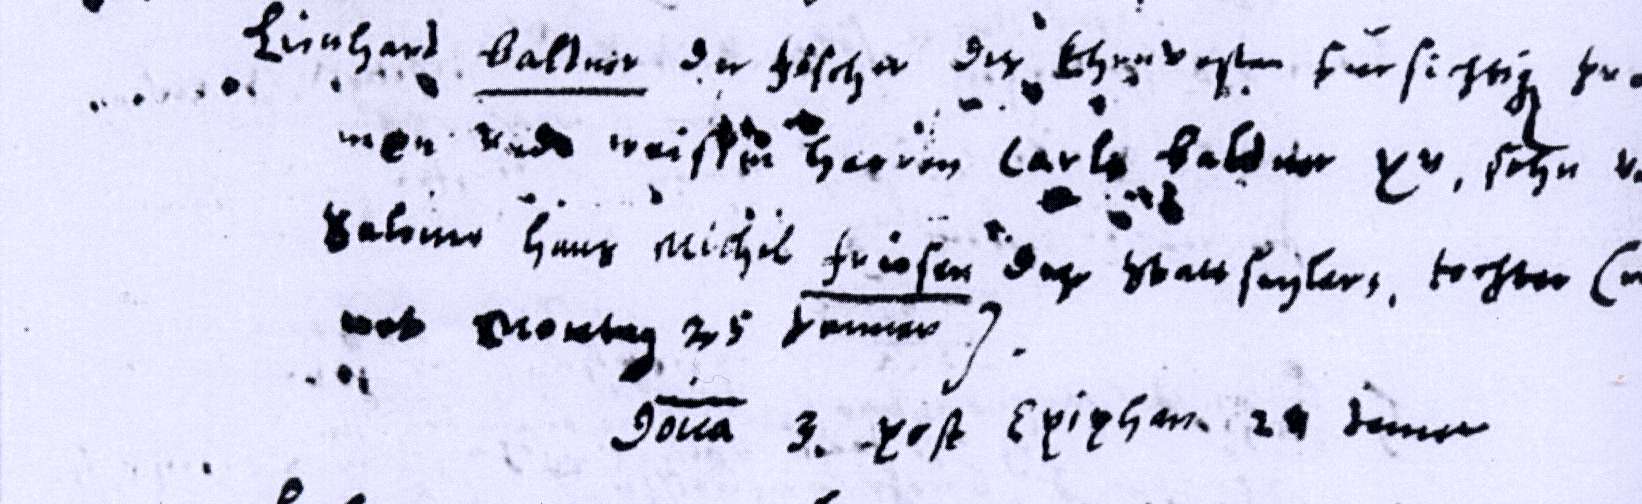 Lienhard Baldner der fischer des Ehrnvesten fürsichtig fro
men und weissen herren Carls Baldner XV, sohn v
Salome hans Michel friesen des Statt seylers, tochter (
not Montag 25 Jenner).
Doica 3. post Epiphan 24 Jenner